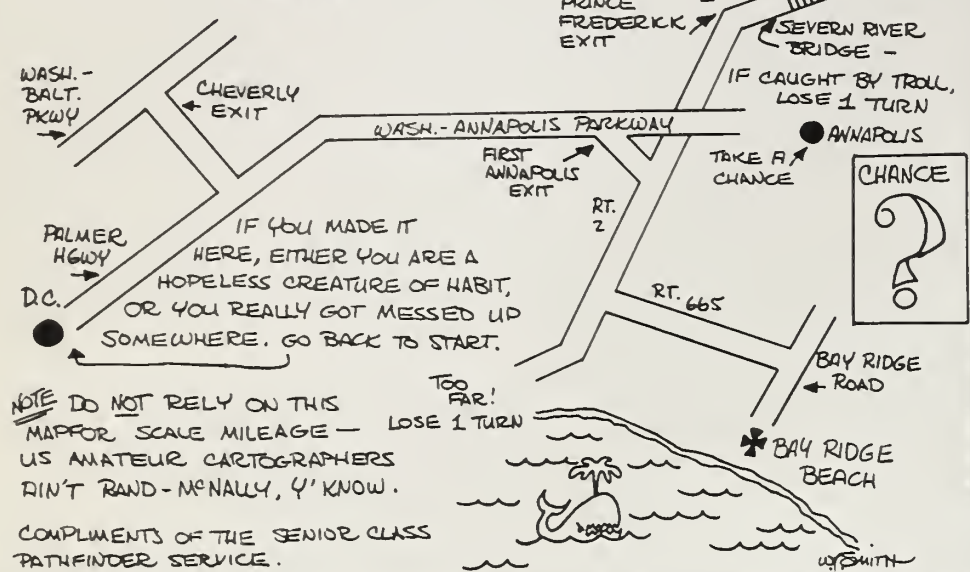 PRINCE
FREDERICK
EXIT
SEVERN RIVER
BRIDGE —
IF CAUGHT BY TROLL,
LOSE 1 TURN
WASH.-
BALT.
PKWY
CHEVERLY
EXIT
WASH.-ANNAPOLIS PARKWAY
ANNAPOLIS
FIRST
ANNAPOLIS
EXIT
TAKE A
CHANCE
CHANCE
?
RT.
2
PALMER
HGWY
D.C.
IF YOU MADE IT
HERE, EITHER YOU ARE A
HOPELESS CREATURE OF HABIT,
OR YOU REALLY GOT MESSED UP
SOMEWHERE. GO BACK TO START.
RT. 665
BAY RIDGE
ROAD
TOO
FAR!
LOSE 1 TURN
BAY RIDGE
BEACH
NOTE DO NOT RELY ON THIS
MAPFOR SCALE MILEAGE —
US AMATEUR CARTOGRAPHERS
AIN'T RAND-McNALLY, Y'KNOW.
COMPLIMENTS OF THE SENIOR CLASS
PATHFINDER SERVICE.
W. SMITH